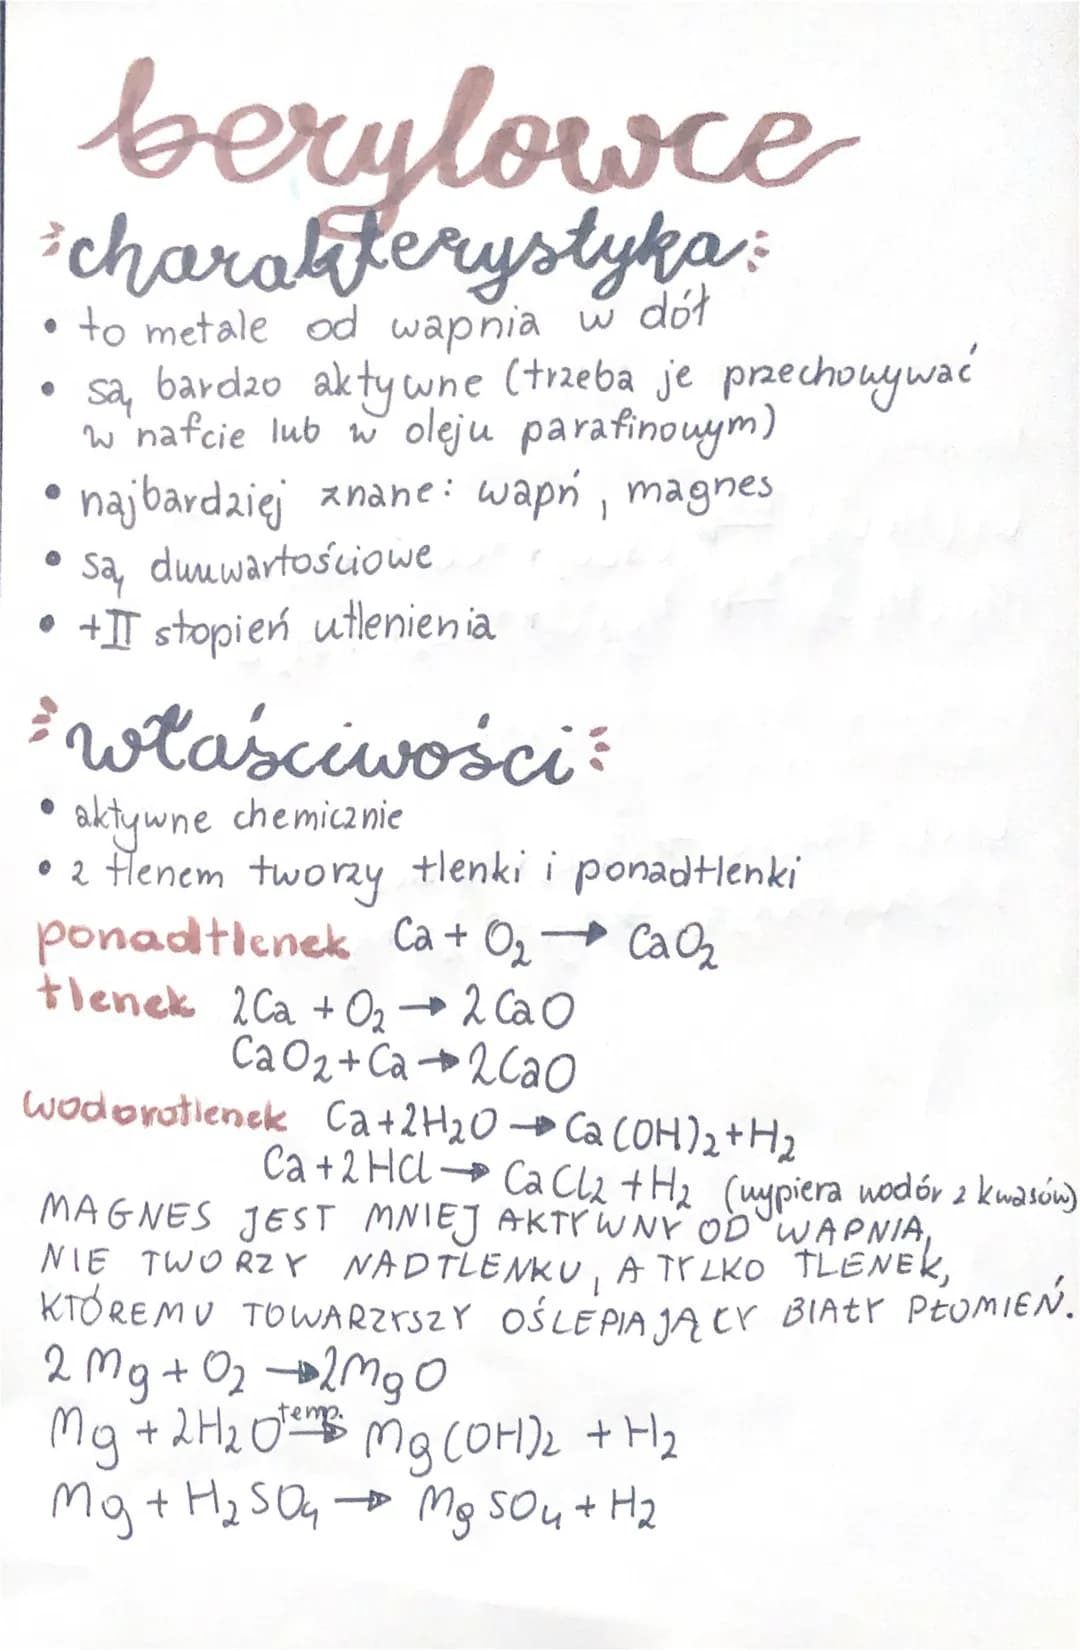 berylowce
charakterystyka:
• to metale od wapnia w dół
• są bardzo aktywne (trzeba je przechowywać
w nafcie lub w oleju parafinowym)
• najbardziej znane: wapń, magnes
• są duuwartościowe
• +II stopień utlenienia
właściwości:
• aktywne chemicznie
• z tlenem tworzy tlenki i ponadtlenki
ponadtlenek Ca + O₂ → CaO₂
tlenek 2Ca + O₂ → 2CaO
CaO₂ + Ca → 2CaO
wodorotlenek Ca+2H₂O → Ca(OH)₂+H₂
Ca+2HCl → CaCl₂ + H₂ (wypiera wodór z kwasów)
MAGNES JEST MNIEJ AKTYWNY OD WAPNIA,
NIE TWORZY NADTLENKU, A TYLKO TLENEK,
KTÓREMU TOWARZYSZY OŚLEPIAJĄCY BIAŁY PŁOMIEŃ.
2Mg + O₂ → 2MgO
Mg + 2H₂O temp.→ Mg(OH)₂ + H₂
Mg + H₂SO₄ → MgSO₄ + H₂